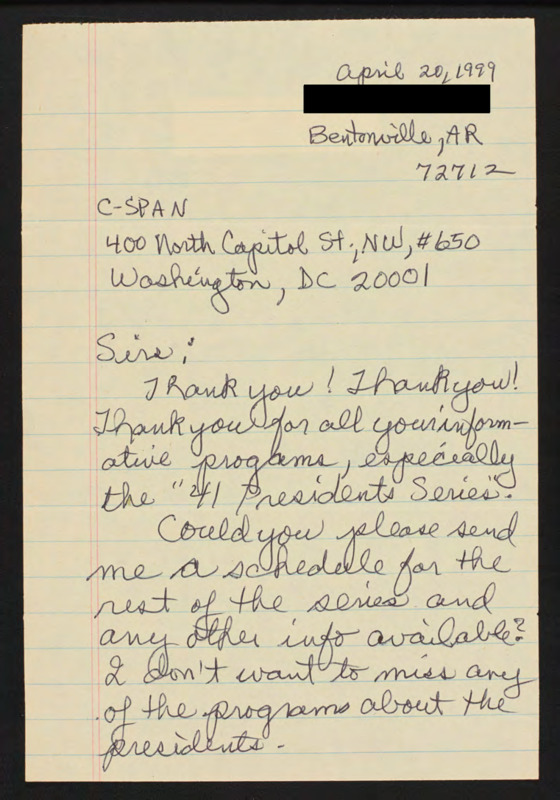 April 20, 1999
Bentonville, AR
72712
C-SPAN
400 North Capitol St., NW, #650
Washington, DC 20001
Sirs:
Thank you! Thank you!
Thank you for all your inform-
ative progams, especially
the "41 Presidents Series".
Could you please send
me a schedule for the
rest of the series and
any other info available?
I don't want to miss any
of the programs about the
presidents.